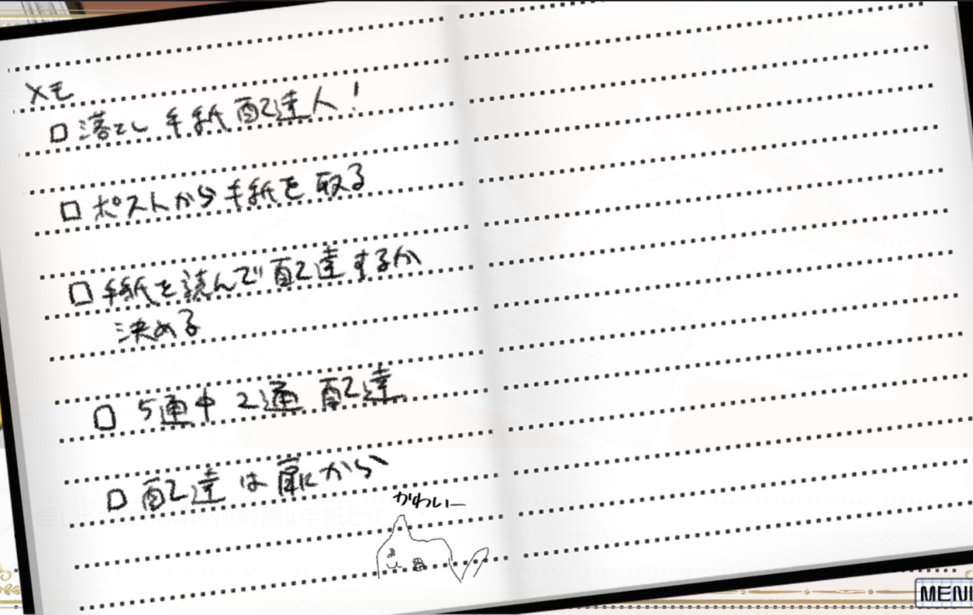 メモ
□ 落とし 手紙 配達人!
□ ポストから手紙を取る
□ 手紙を読んで配達するか
決める
□ 5通中 2通 配達
□ 配達は扉から
かわいー
MENU